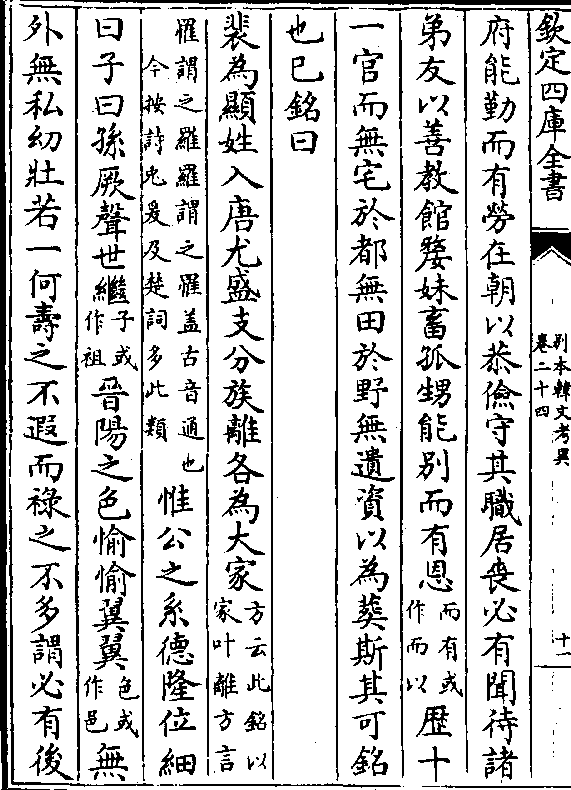 欽定四庫全書
別本韓文考異
卷二十四
十一
府能勤而有勞在朝以恭儉守其職居喪必有聞待諸
弟友以善教館嫠妹畜孤甥能別而有恩而有或作而以歴十
一官而無宅於都無田於野無遺資以為葬斯其可銘
也已銘曰
裴為顯姓入唐尤盛支分族離各為大家方云此銘以家叶離方言
罹謂之羅羅謂之罹盖古音通也今按詩兎爰及楚詞多此類惟公之系德隆位細
曰子曰孫厥聲世繼子或作祖晉陽之色愉愉翼翼色或作邑無
外無私幼壯若一何壽之不遐而祿之不多謂必有後